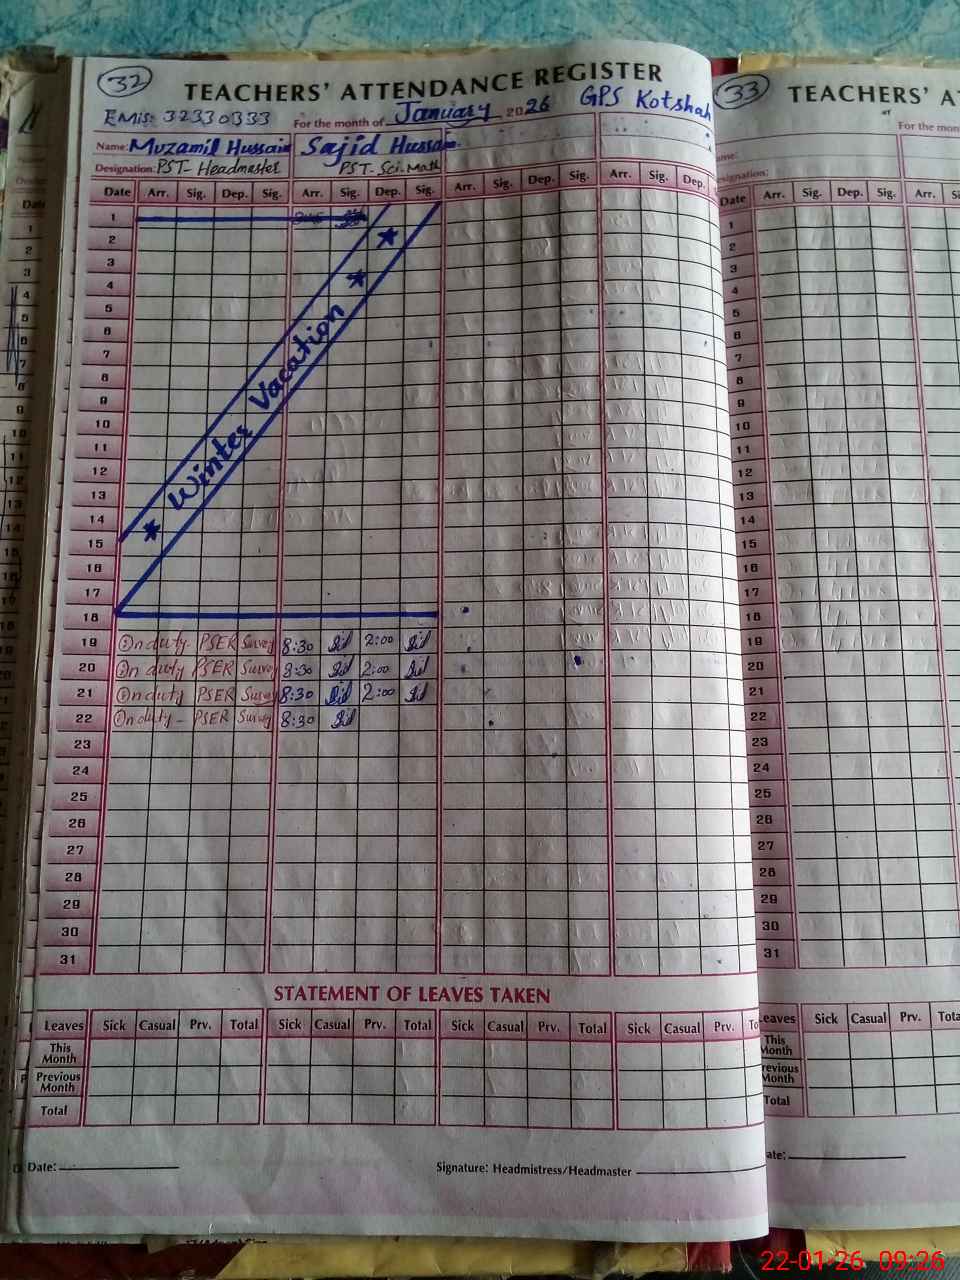 32
TEACHERS' ATTENDANCE REGISTER
EMIS: 32330333 For the month of January 2026 GPS Kotshah
Name: Muzamil Hussain Sajid Hussain
Designation: PST-Headmaster PST-Sci.Math
Date Arr. Sig. Dep. Sig. Arr. Sig. Dep. Sig. Arr. Sig. Dep. Sig. Arr. Sig. Dep. Sig.
1
2
3
4
5
6
7
8
9
10
11
12
13
14
15
16
17
18
* Winter Vacation * *
19 On duty - PSER Survey 8:30 2:00
20 On duty PSER Survey 8:30 2:00
21 On duty PSER Survey 8:30 2:00
22 On duty - PSER Survey 8:30
23
24
25
26
27
28
29
30
31
STATEMENT OF LEAVES TAKEN
Leaves Sick Casual Prv. Total Sick Casual Prv. Total Sick Casual Prv. Total Sick Casual Prv. To
This Month
Previous Month
Total
Date: Signature: Headmistress/Headmaster
33
TEACHERS' AT
For the mon
ame:
esignation:
Date Arr. Sig. Dep. Sig. Arr. Si
1
2
3
4
5
6
7
8
9
10
11
12
13
14
15
16
17
18
19
20
21
22
23
24
25
26
27
28
29
30
31
eaves Sick Casual Prv. Tota
This
Month
revious
Month
Total
ate:
22-01-26 09:26